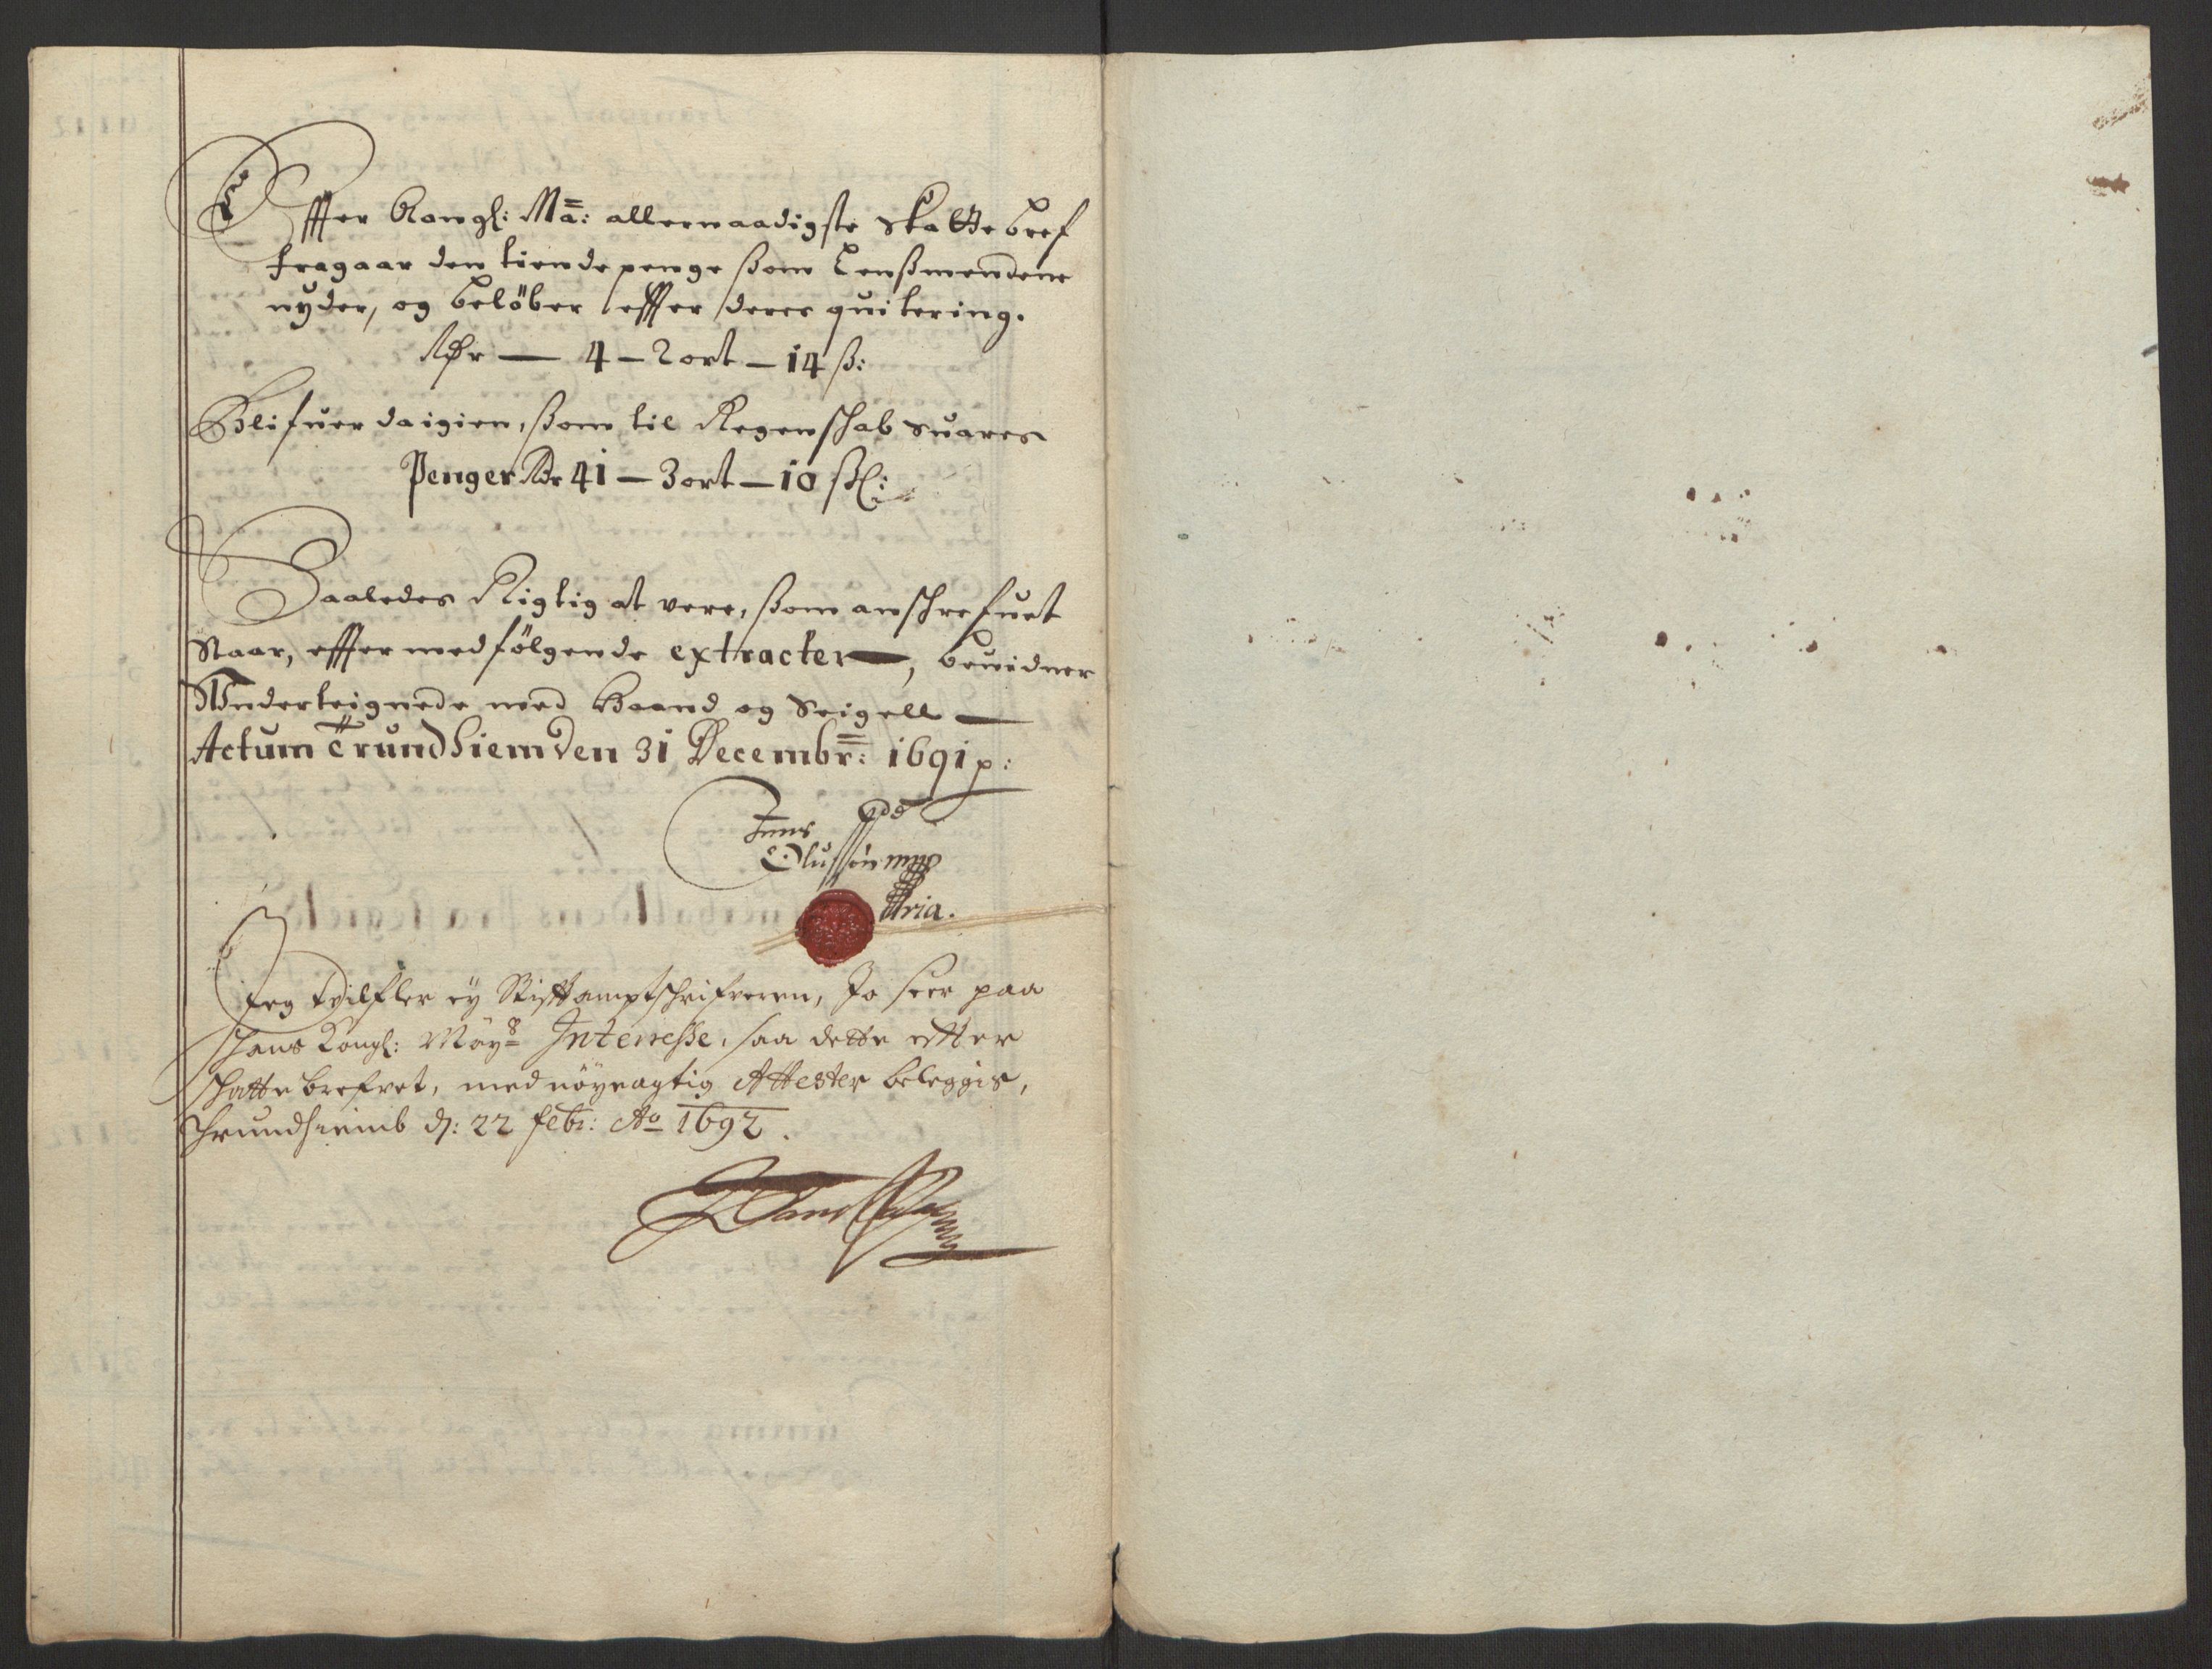 Effter Kongl: Ma: allernaadigste Skattebref
fragaar den tiende penge ßom Lenßmendene
nyder, og beløber effter deres quitering.
Rdr — 4 – 2 ort – 14 ß:
Blifuer da igien, ßom til Regenschab suares
Penger Rdr 41 – 3 ort – 10 ßl:
Saaledes Rigtig at vere, ßom anschrefuet
Staar, effter medfölgende extracter, bewidner
Vnderteignede med Haand og Seigell
Actum Trundhiem den 31 Decembr: 1691 p:
Jens
Olufsøn mpp
ria.
Jeg tvilfler ey Stifftamptschrifveren, Jo seer paa
Hans Kongl: Mays Interresse, saa dette effter
schatte brefvet, med nöyeagtig Attester beleggis,
Thrundhiemb d: 22 febr: Ao 1692.